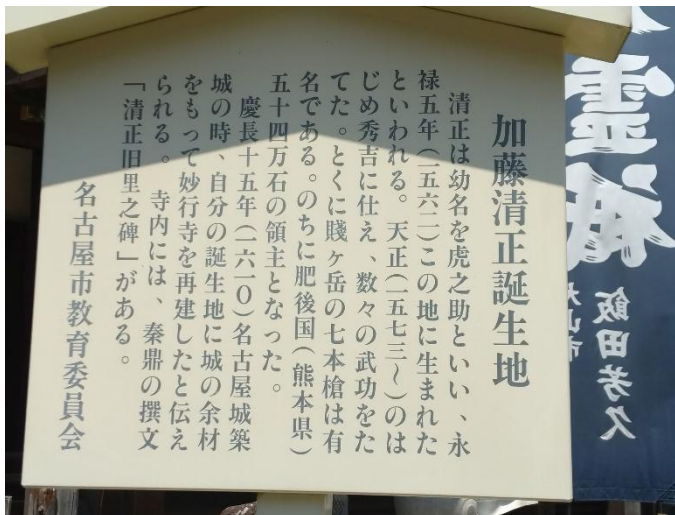 加藤清正誕生地
清正は幼名を虎之助といい、永
禄五年(一五六二)この地に生まれた
といわれる。天正(一五七三〜)のは
じめ秀吉に仕え、数々の武功をた
てた。とくに賤ヶ岳の七本槍は有
名である。のちに肥後国(熊本県)
五十四万石の領主となった。
慶長十五年(一六一〇)名古屋城築
城の時、自分の誕生地に城の余材
をもって妙行寺を再建したと伝え
られる。 寺内には、秦鼎の撰文
「清正旧里之碑」がある。
名古屋市教育委員会
飯田芳久